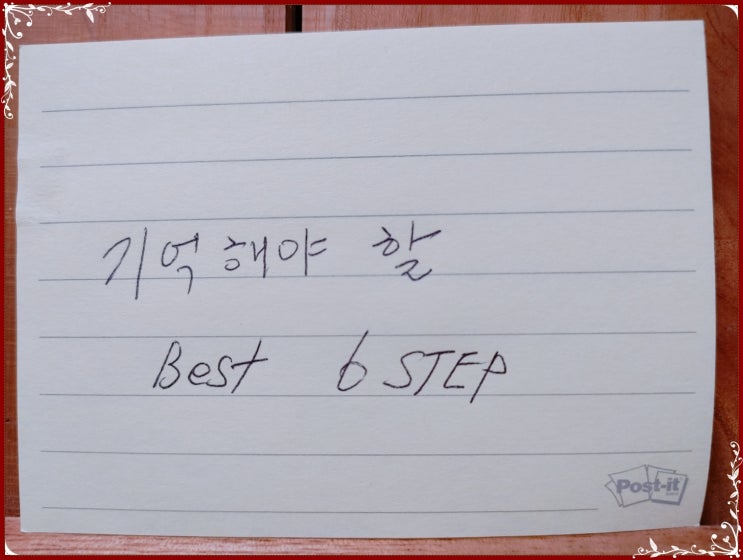 기억해야 할
Best 6 STEP
Post-it